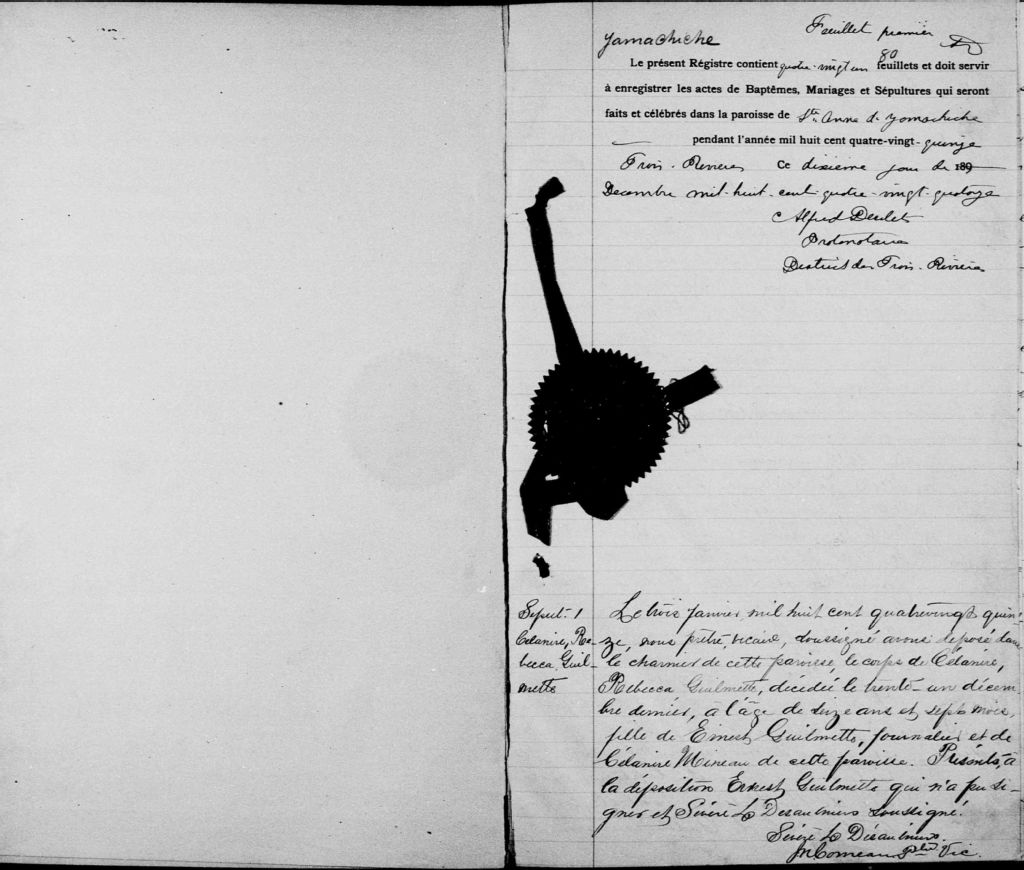 Feuillet premier
Yamachiche
80
Le présent Régistre contient quatre-vingt un feuillets et doit servir
à enregistrer les actes de Baptêmes, Mariages et Sépultures qui seront
faits et célébrés dans la paroisse de Ste Anne d. Yamachiche
pendant l'année mil huit cent quatre-vingt-quinze
Trois-Rivieres Ce dixieme jour de 189
Decembre mil-huit-cent-quatre-vingt-quatorze
Alfred Desilets
Protonotaire
District des Trois-Rivieres
Sépult. 1
Célanire, Re-
becca Guil-
mette
Le trois janvier mil huit cent quatrevingt quin-
ze, nous prêtre, vicaire, soussigné avons déposé dans
le charnier de cette paroisse le corps de Célanire,
Rebecca Guilmette, décédée le trente-un décem-
bre dernier, à l'âge de seize ans et sept mois,
fille de Ernest Guilmette, journalier et de
Célanire Mineau de cette paroisse. Présents, à
la déposition Ernest Guilmette qui n'a pu si-
gner et Sévère L. Desaulniers soussigné.
Sévère L. Désaulniers
Comeau Ptre Vic.